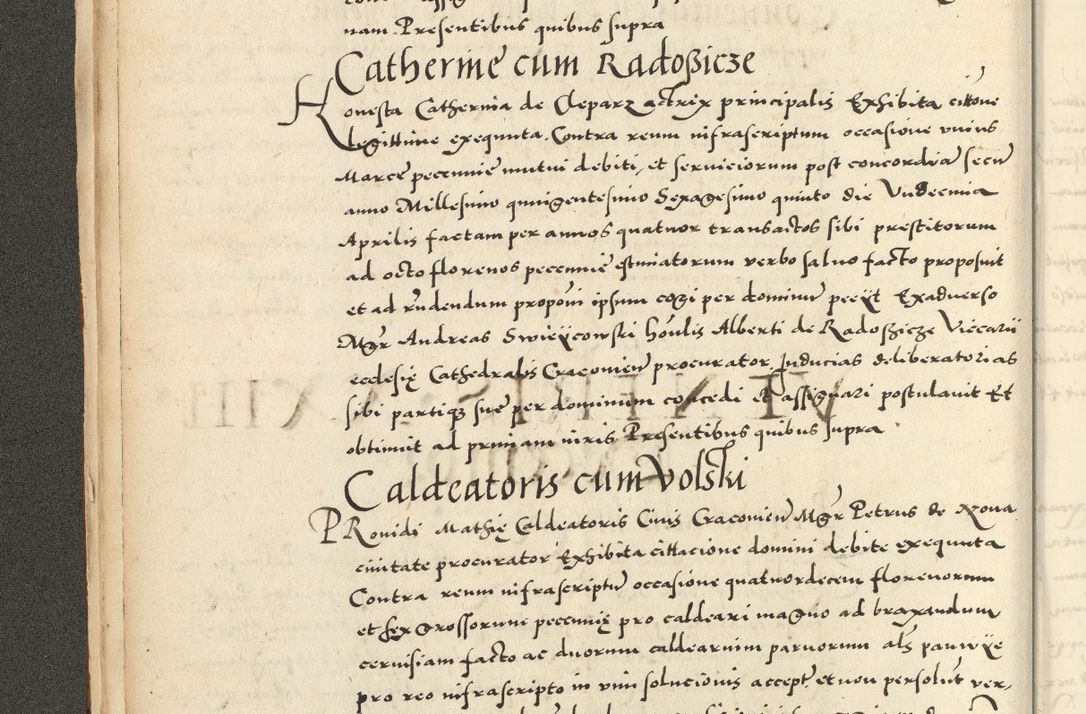 nam. Presentibus quibus supra
Catherine cum Radoßicze
Honesta Catherina de Cleparz actrix principalis Exhibita citone
legittime exequuta. Contra reum infrascriptum occasione unius
Marce pecunie mutui debiti, et serviciorum post concordia secu
anno Millesimo quingentesimo Sexagesimo quinto die Undecima
Aprilis factam per annos quatuor transactos sibi prestitorum
ad octo florenos pecunie estimatorum verbo salvo facto proposuit
et ad rndendum proponi ipsum cogi per dominum peciit Exadverso
Mgr Andreas Swieycowski honlis Alberti de Radoßicze Viccarii
ecclesię Cathedralis Cracovien procurator Inducias deliberatorias
sibi partiq3 sue per dominum concedi et assignari postulavit Et
obtinuit ad primam iuris Presentibus quibus supra
Caldeatoris cum Volski
PRovidi Mathię Caldeatoris Civis Cracovien Mgr Petrus de Nova
civitate procurator Exhibita cittacione domini debite exequuta
Contra reum infrascriptu occasione quatuordecem florenorum
et sex grossorum pecunię pro caldeari magno ad braxandum
cervisiam facto ac duorum caldearium parvorum als panwye
pro reo infrascripto in vim solucionis accept, et non persolut ver,